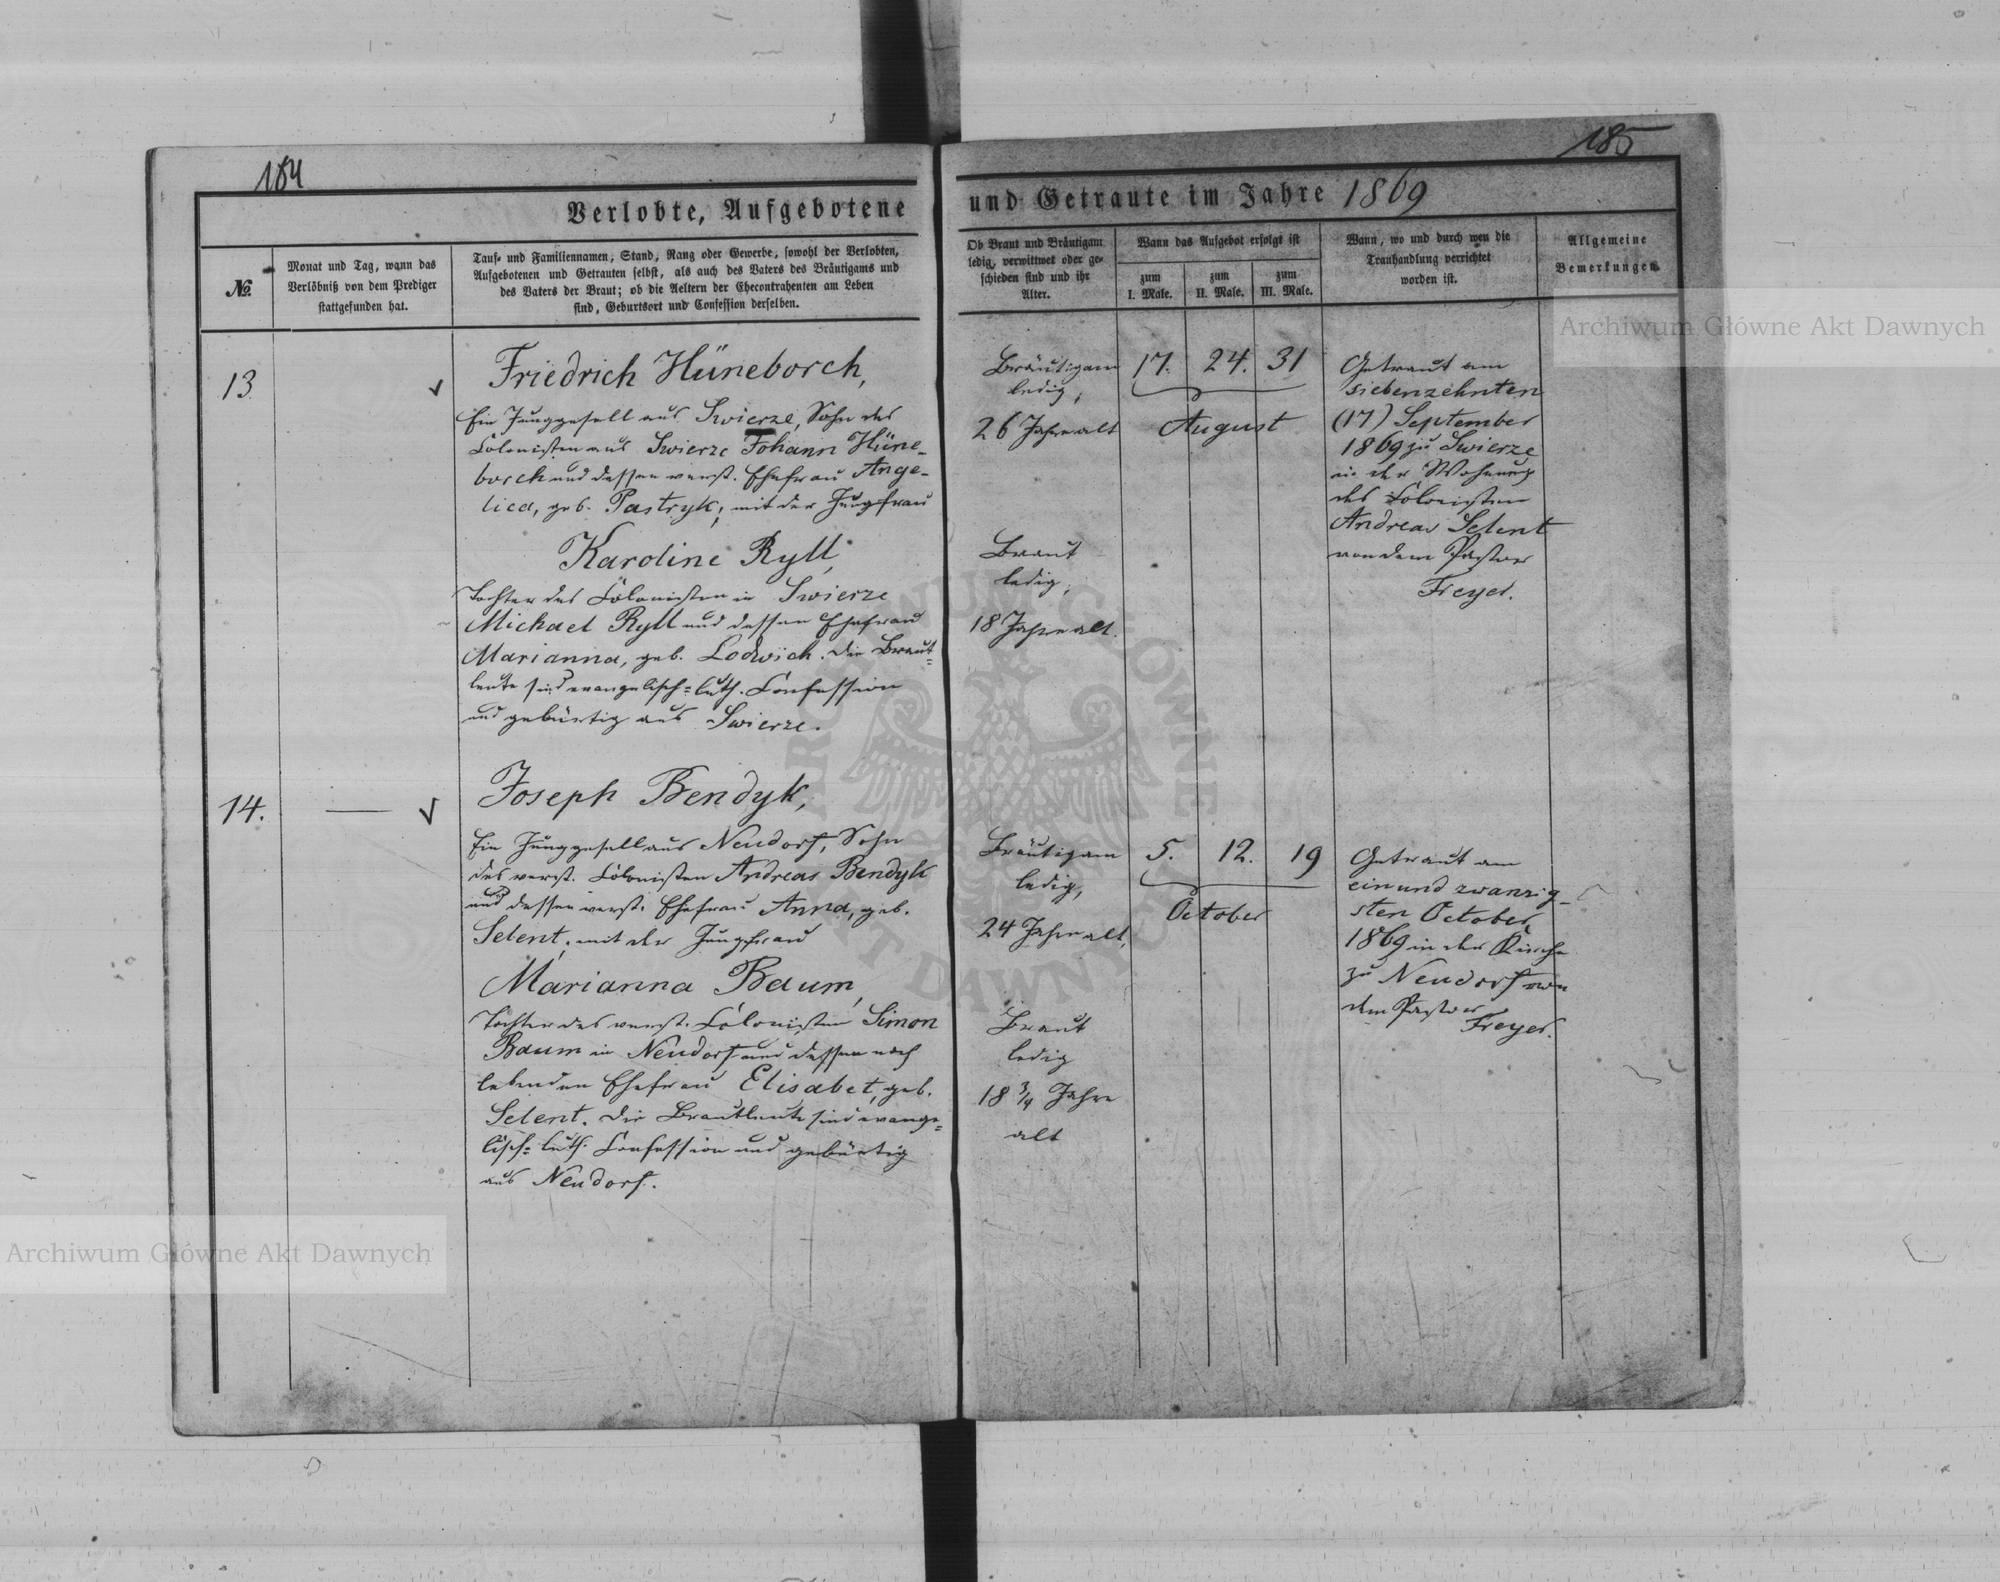 184
Verlobte, Aufgebotene
№
Monat und Tag, wann das
Verlöbniß von dem Prediger
stattgefunden hat.
Tauf- und Familiennamen, Stand, Rang oder Gewerbe, sowohl der Verlobten,
Aufgebotenen und Getrauten selbst, als auch des Vaters des Bräutigams und
des Vaters der Braut; ob die Aeltern der Ehecontrahenten am Leben
sind, Geburtsort und Confession derselben.
13.
Friedrich Hüneborch,
Ein Junggesell aus Swierze, Sohn des
Colonisten aus Swierze Johann Hüne-
borch und dessen verst. Ehefrau Ange-
lica, geb. Pastryk; mit der Jungfrau
Karoline Ryll,
Tochter des Colonisten in Swierze
Michael Ryll und dessen Ehefrau
Marianna, geb. Lodwich. Die Braut-
leute sind evangelisch-luth. Confession
und gebürtig aus Swierze.
14.
Joseph Bendyk,
Ein Junggesell aus Neudorf, Sohn
des verst. Colonisten Andreas Bendyk
und dessen verst. Ehefrau Anna, geb.
Selent, mit der Jungfrau
Marianna Baum,
Tochter des verst. Colonisten Simon
Baum in Neudorf und dessen noch
lebenden Ehefrau Elisabet, geb.
Selent. Die Brautleute sind evange-
lisch-luth. Confession und gebürtig
aus Neudorf.
185
und Getraute im Jahre 1869
Ob Braut und Bräutigam
ledig, verwittwet oder ge-
schieden sind und ihr
Alter.
Wann das Aufgebot erfolgt ist
zum
I. Male.
zum
II. Male.
zum
III. Male.
Wann, wo und durch wen die
Trauhandlung verrichtet
worden ist.
Allgemeine
Bemerkungen.
Bräutigam
ledig,
26 Jahre alt
17. 24. 31
August
Getraut am
siebenzehnten
(17) September
1869 zu Swierze
in der Wohnung
des Colonisten
Andreas Selent
von dem Pastor
Freyer.
Braut
ledig,
18 Jahre alt.
Bräutigam
ledig,
24 Jahre alt,
5. 12. 19
October
Getraut am
einund zwanzig-
sten October,
1869 in der Kirche
zu Neudorf von
dem Pastor
Freyer.
Braut
ledig
18 3/4 Jahre
alt
Archiwum Główne Akt Dawnych
Archiwum Główne Akt Dawnych
ARCHIWUM GŁÓWNE AKT DAWNYCH